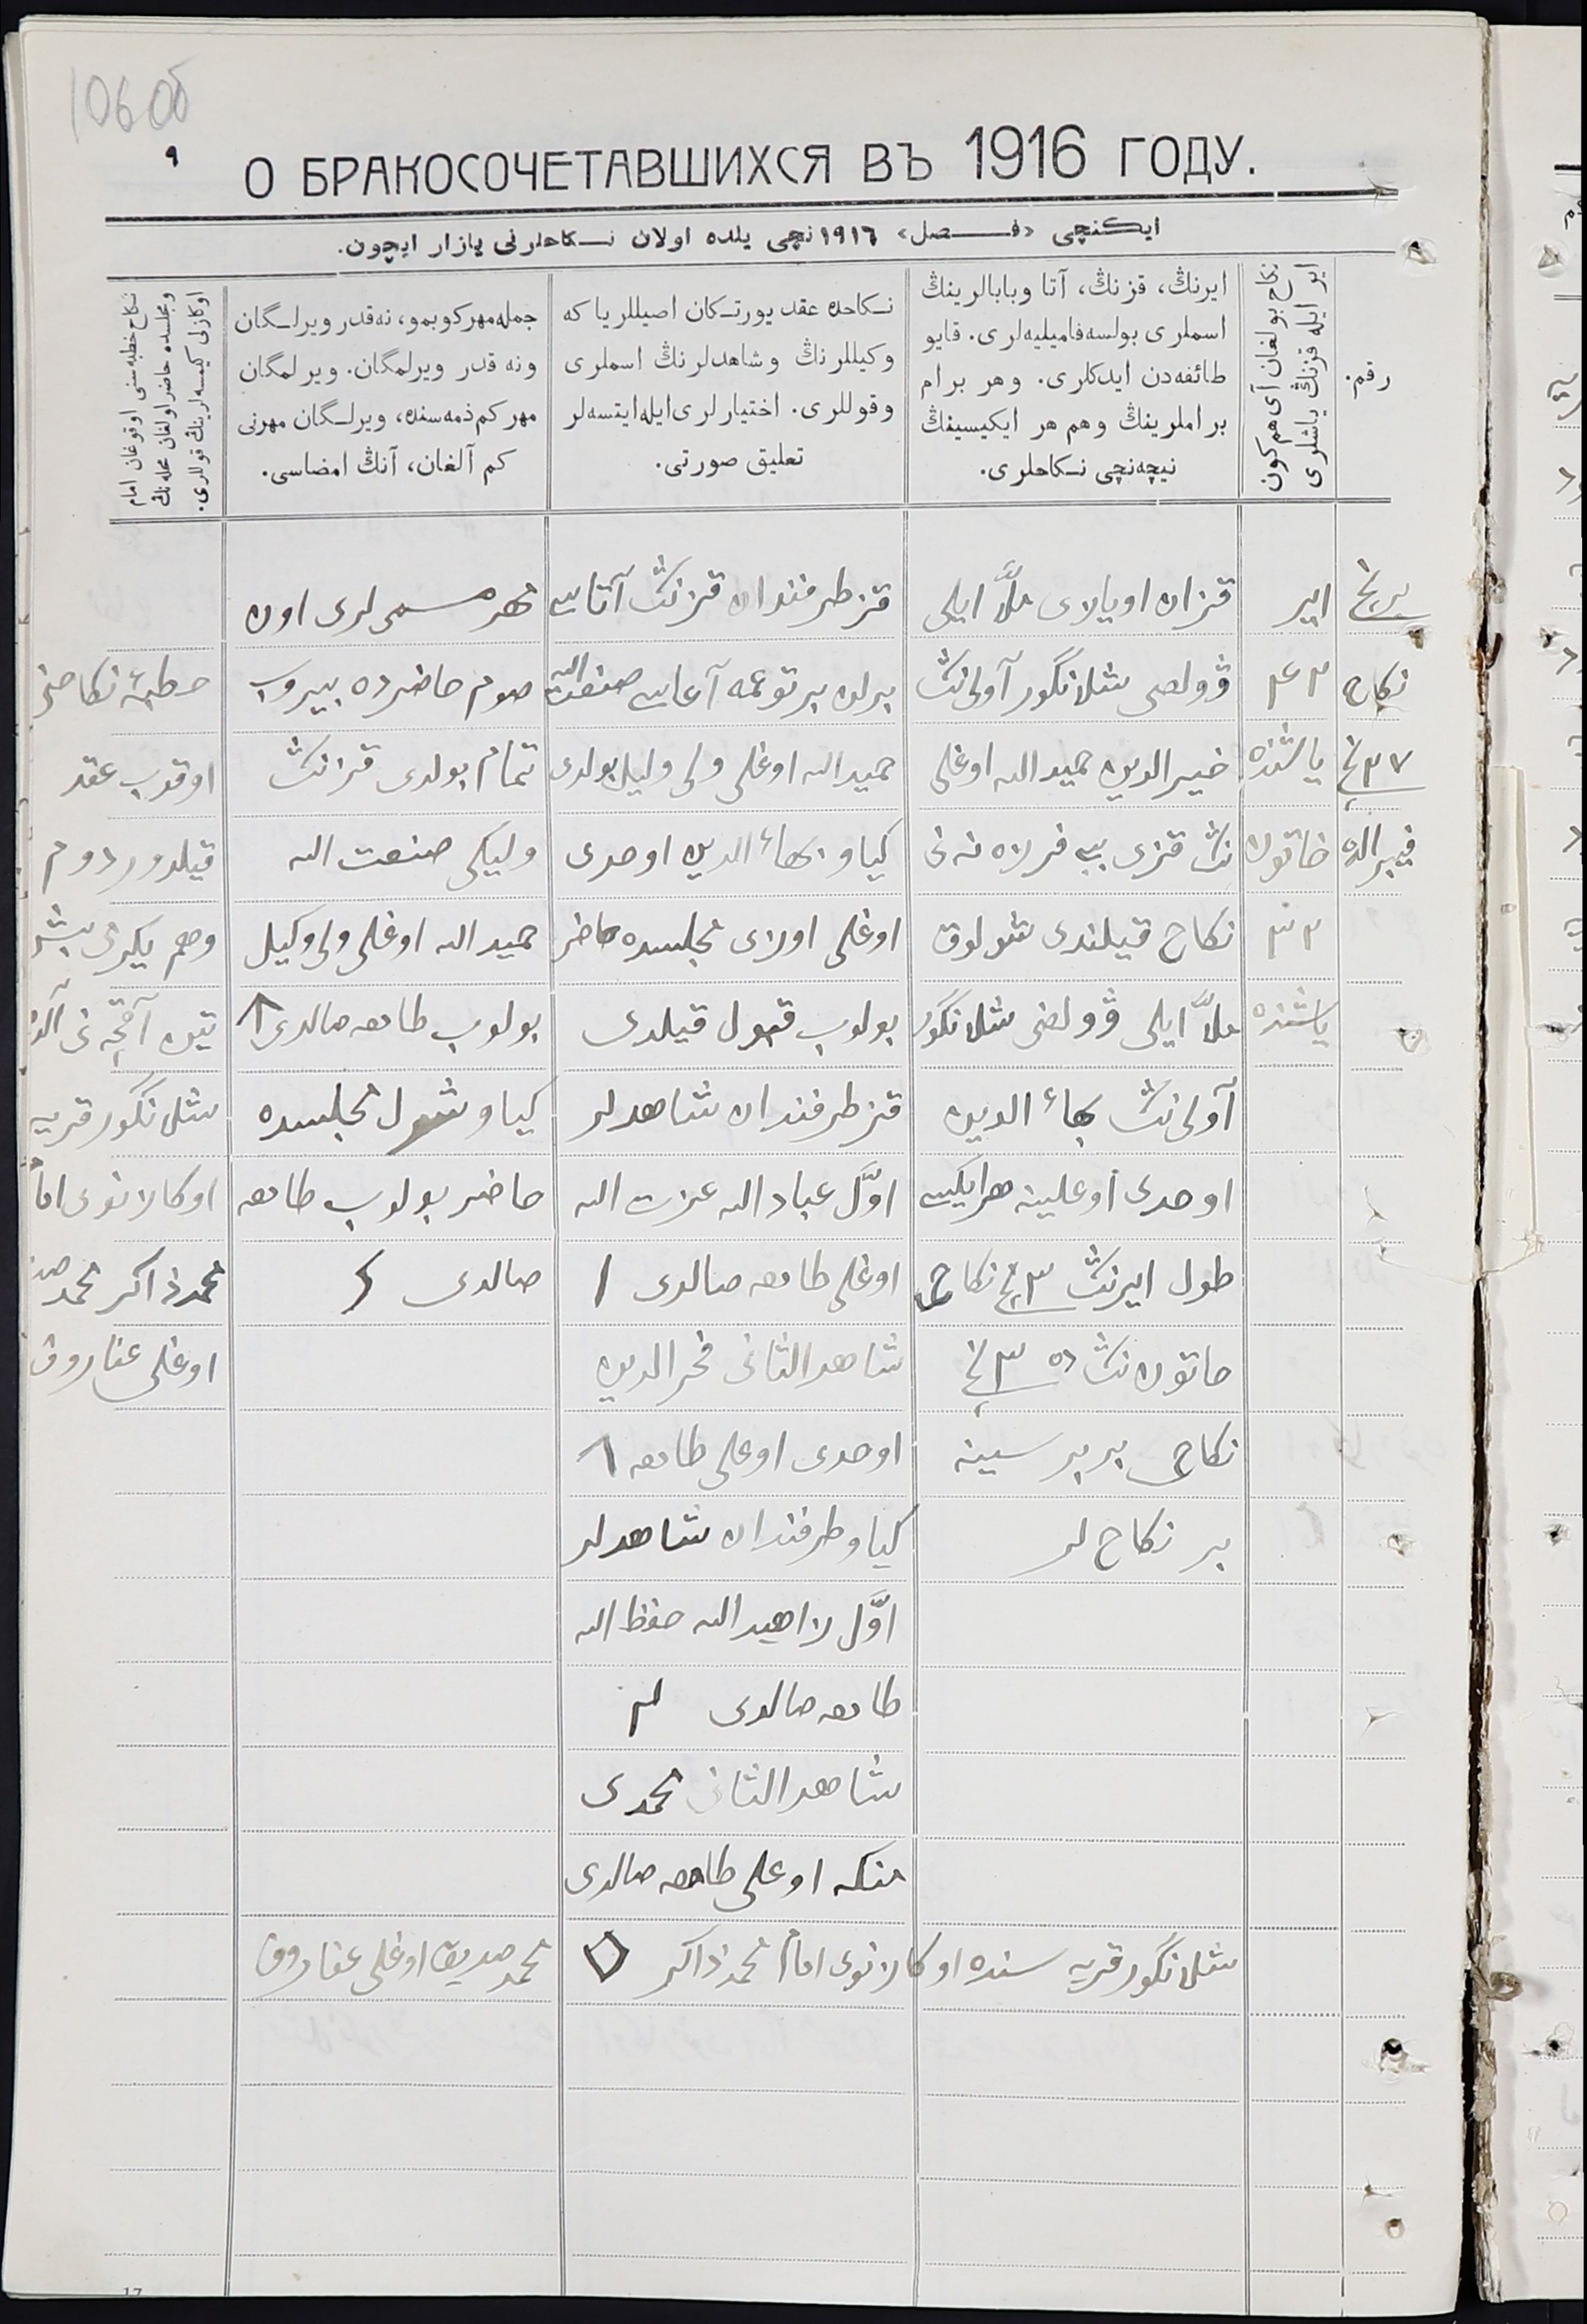 106 об
٩
О БРАКОСОЧЕТАВШИХСЯ ВЪ 1916 ГОДУ.
ایكنچی «فصل» ١٩١٦ نچی یلده اولان نكاحلرنی یازار ایچون.
رقم.
نكاح بولغان آی هم كون
ایر ایله قزنڭ یاشلری
ایرنڭ، قزنڭ، آتا وبابالرینڭ
اسملری بولسه فامیلیه‌لری. قایو
طائفه‌دن ایدكلری. وهر برام
براملرینڭ وهم هر ایكیسینڭ
نیچه‌نچی نكاحلری.
نكاحده عقد یورتكان اصیللر یا كه
وكیللرنڭ وشاهدلرنڭ اسملری
وقوللری. اختیارلری ایله ایتسه‌لر
تعلیق صورتی.
جمله مهر كوبمو، نه قدر ویرلگان
ونه قدر ویرلمگان. ویرلمگان
مهر كم ذمه‌سنده، ویرلگان مهرنی
كم آلغان، آنڭ امضاسی.
نكاح خطبه‌سنی اوقوغان امام
ومجلسده حاضر اولغان محله‌نڭ
اوكازلی كیمسه‌لرینڭ قوللری.
نكاح
٣٧ نچی
ایر
٤٣
یاشنده
خاتون
٣٣
یاشنده
قزان اویازی ملّا ایلی
ڤولصی شلانگور آولی نڭ
خیرالدین حمیدالله اوغلی
نڭ قزی بیبی فرزانه نی
نكاح قیلندی شولوق
ملّا ایلی ڤولصی شلانگور
آولی نڭ بهاءالدین
اوحدی اوغلینه هر ایكیسی
طول ایرنڭ ٣ نچی نكاحی
خاتون نڭ ده ٣ نچی
نكاحی بر برسینه
بر نكاح لر
قز طرفندان قزنڭ آتاسی
برلان بر توغمه آغاسی صنعت الله
حمیدالله اوغلی ولی وكیل بولدی
كیاو بهاءالدین اوحدی
اوغلی اوزی مجلسده حاضر
بولوب قبول قیلدی
قز طرفندان شاهدلر
اوّل عبادالله عزت الله
اوغلی طامعه صالدی
شاهد الثانی فخرالدین
اوحدی اوغلی طامعه
كیاو طرفندان شاهدلر
اوّل زاهیدالله حفظ الله
طامعه صالدی
شاهد الثانی محمدی
اوغلی طامعه صالدی
مهر مسمی لری اون
صوم حاضرده بیروب
تمام بولدی قزنڭ
وكیلی صنعت الله
حمیدالله اوغلی ولی وكیل
بولوب طامعه صالدی
كیاو شول مجلسده
حاضر بولوب طامعه
صالدی
خطبۀ نكاحنی
اوقوب عقد
قیلدوردوم
وهم یكرمی بش
تین آقچه نی آلدم
شلانگور قریه
اوكازنوی امام
محمد ذاكر محمد صد
اوغلی غفاروف
شلانگور قریه سنده اوكازنوی امام محمد ذاكر محمد صدیق اوغلی غفاروف
17